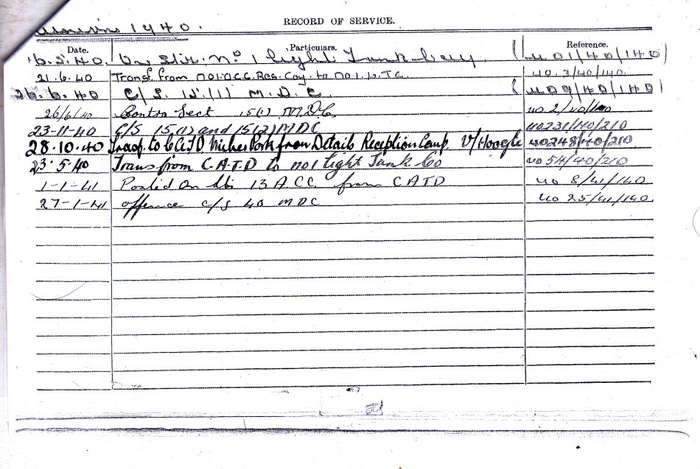 1940.
RECORD OF SERVICE.
Date. Particulars. Reference.
6.5.40 On Str. No 1 Light Tank Coy (UO1/40/140)
21.6.40 Transf. from No1. Res. Coy. to No.1.
26.6.40 C/S. 15(1) M.D.C. (UO9/40/140)
26/6/40 Sect 15(1) M.D.C. UO2/40/140
23-11-40 C/S 15(1) and 15(2) MDC UO231/40/210
28.10.40 to CATD from Details Reception Camp V/Hoogte UO248/40/210
23.5.40 Trans from C.A.T.D to No1 Light Tank Co UO54/40/210
1-1-41 Posted On Str 13 A.C.C. from C.A.T.D UO 8/41/140
27-1-41 offence c/s 40 MDC UO 25/41/140